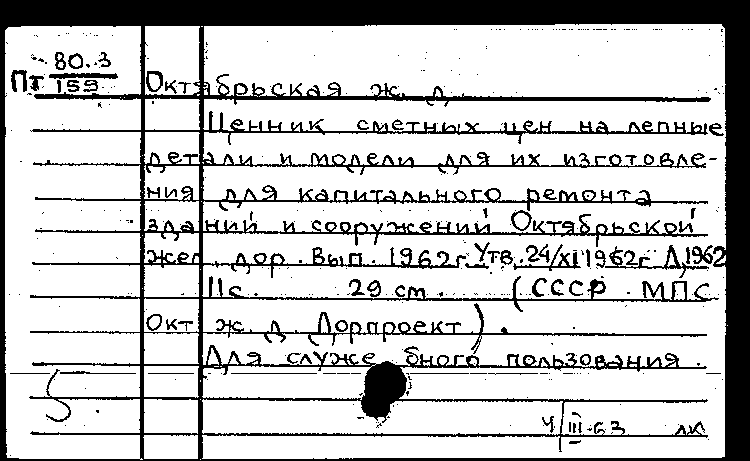 80.3
Пт 159 Октябрьская ж. д.
Ценник сметных цен на лепные
детали и модели для их изготовле-
ния для капитального ремонта
зданий и сооружений Октябрьской
жел. дор. Вып. 1962г. Утв. 24/XI 1962г Л, 1962
11с. 29 см. (СССР. МПС
Окт ж. д. Дорпроект).
Для служебного пользования.
5.
4/III-63 лк